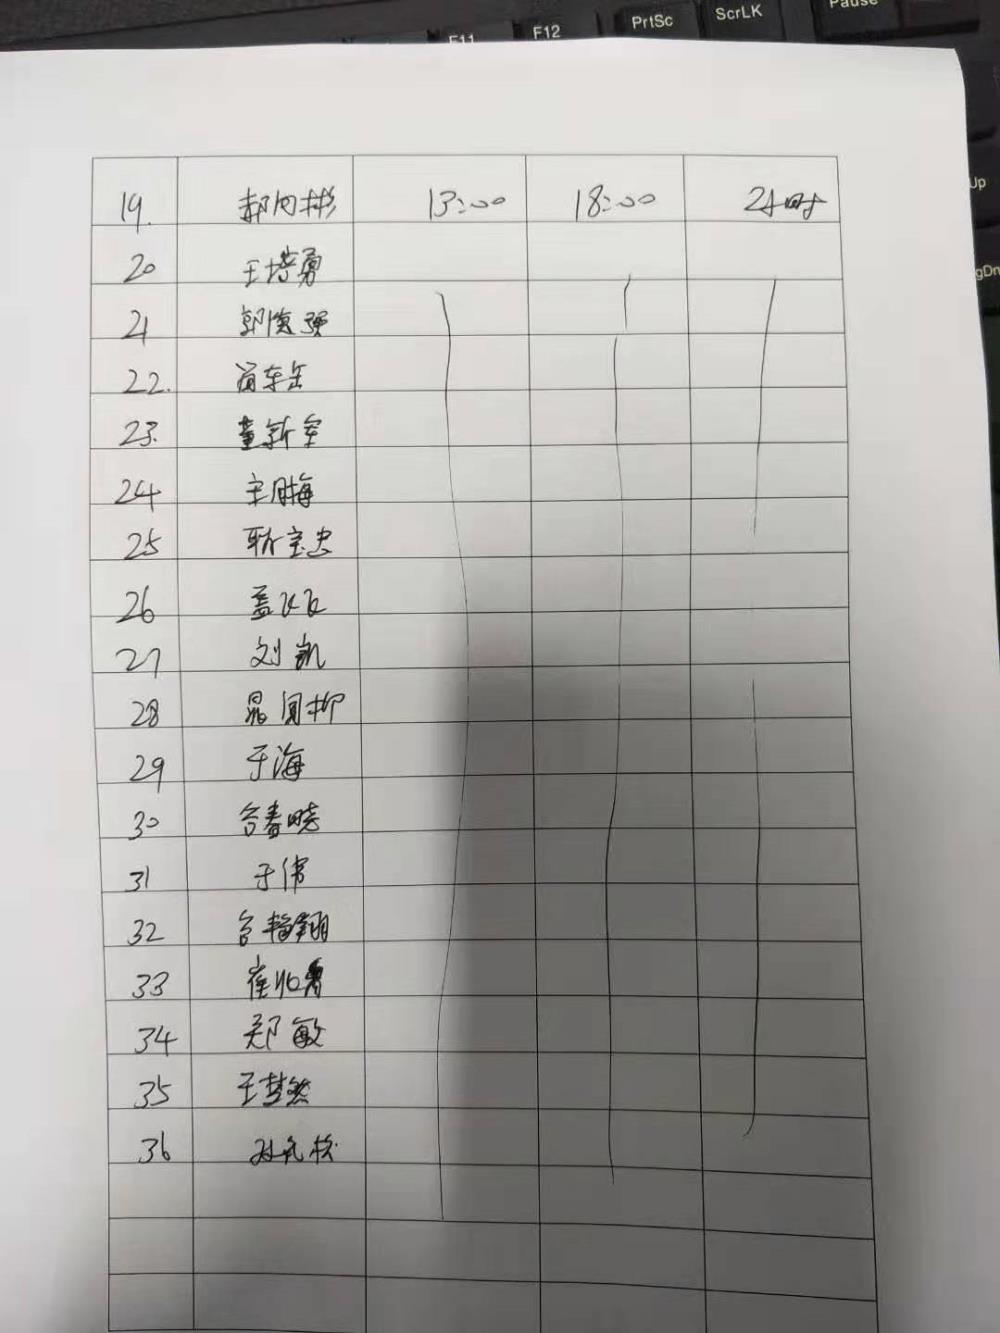 F11 F12 PrtSc ScrLK Pause
Up
gDn
19. 郝向彬 13:00 18:00 24时
20 王培勇
21 郭俊强
22.
23. 董新军
24 王明梅
25 靳宝忠
26 盖
27 刘凯
28
29 于海
30 宫春晓
31 于伟
32 宫翰翔
33 崔
34 郑敏
35 王梦然
36